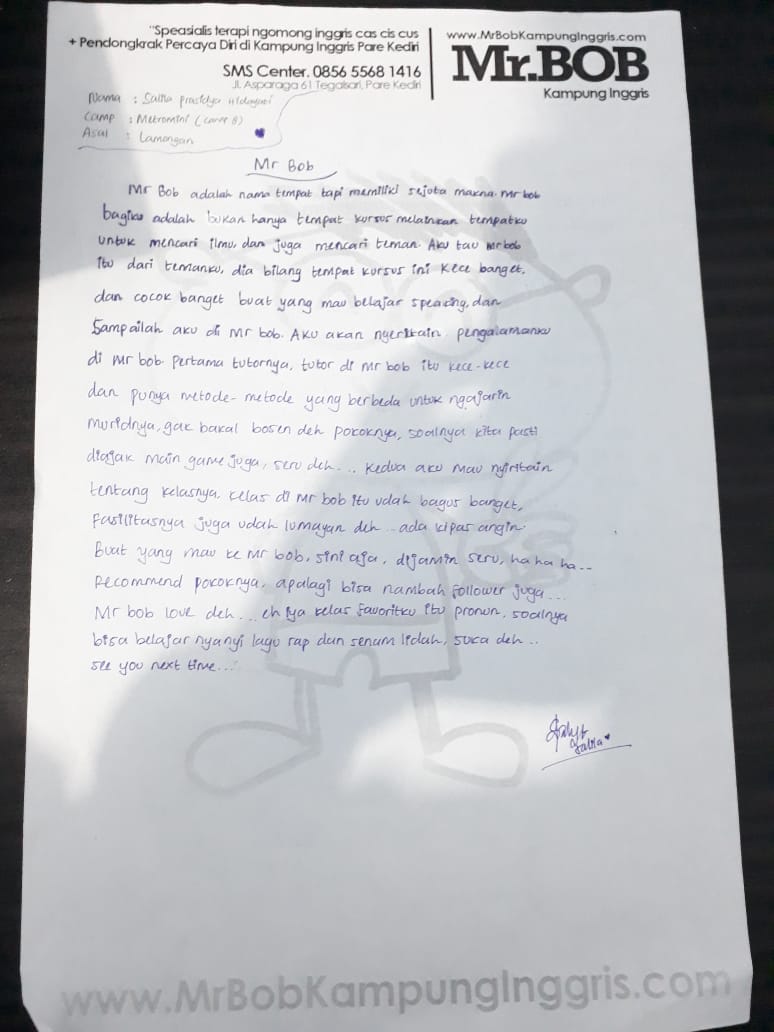 "Speasialis terapi ngomong inggris cas cis cus
+ Pendongkrak Percaya Diri di Kampung Inggris Pare Kediri
SMS Center. 0856 5568 1416
Jl. Asparaga 61 Tegalsari, Pare Kediri
www.MrBobKampungInggris.com
Mr.BOB
Kampung Inggris
Nama : Salna
Camp : Metromini (camp 8)
Asal : Lamongan
Mr Bob
Mr Bob adalah nama tempat tapi memiliki sejuta makna. Mr bob
bagiku adalah bukan hanya tempat kursus melainkan tempatku
untuk mencari ilmu, dan juga mencari teman. Aku tau mr bob
itu dari temanku, dia bilang tempat kursus ini kece banget,
dan cocok banget buat yang mau belajar speaking, dan
Sampailah aku di Mr bob. Aku akan nyeritain pengalamanku
di Mr bob. Pertama tutornya, tutor di Mr bob itu kece-kece
dan punya metode-metode yang berbeda untuk ngajarin
muridnya, gak bakal bosen deh pokoknya, soalnya kita pasti
diajak main game juga, seru deh... kedua aku mau nyiritain
tentang kelasnya, kelas di Mr bob itu udah bagus banget,
Fasilitasnya juga udah lumayan deh.. ada kipas angin.
Buat yang mau ke Mr bob, sini aja, dijamin seru, ha ha ha...
Recommend pokoknya, apalagi bisa nambah follower juga...
Mr bob love deh... eh iya kelas favoritku itu pronon, soalnya
bisa belajar nyanyi lagu rap dan senam lidah, suca deh..
see you next time...
www.MrBobKampungInggris.com